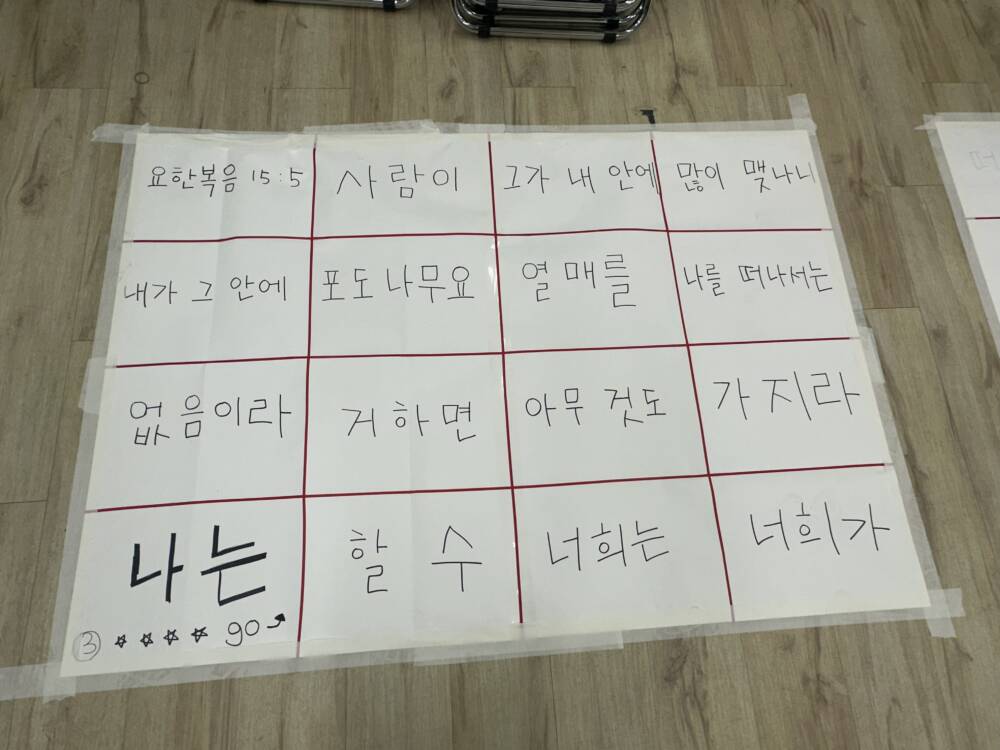 요한복음 15:5
사람이
그가 내 안에
많이 맺나니
내가 그 안에
포도나무요
열매를
나를 떠나서는
없음이라
거하면
아무 것도
가지라
나는
할 수
너희는
너희가
③ ☆☆☆☆ go